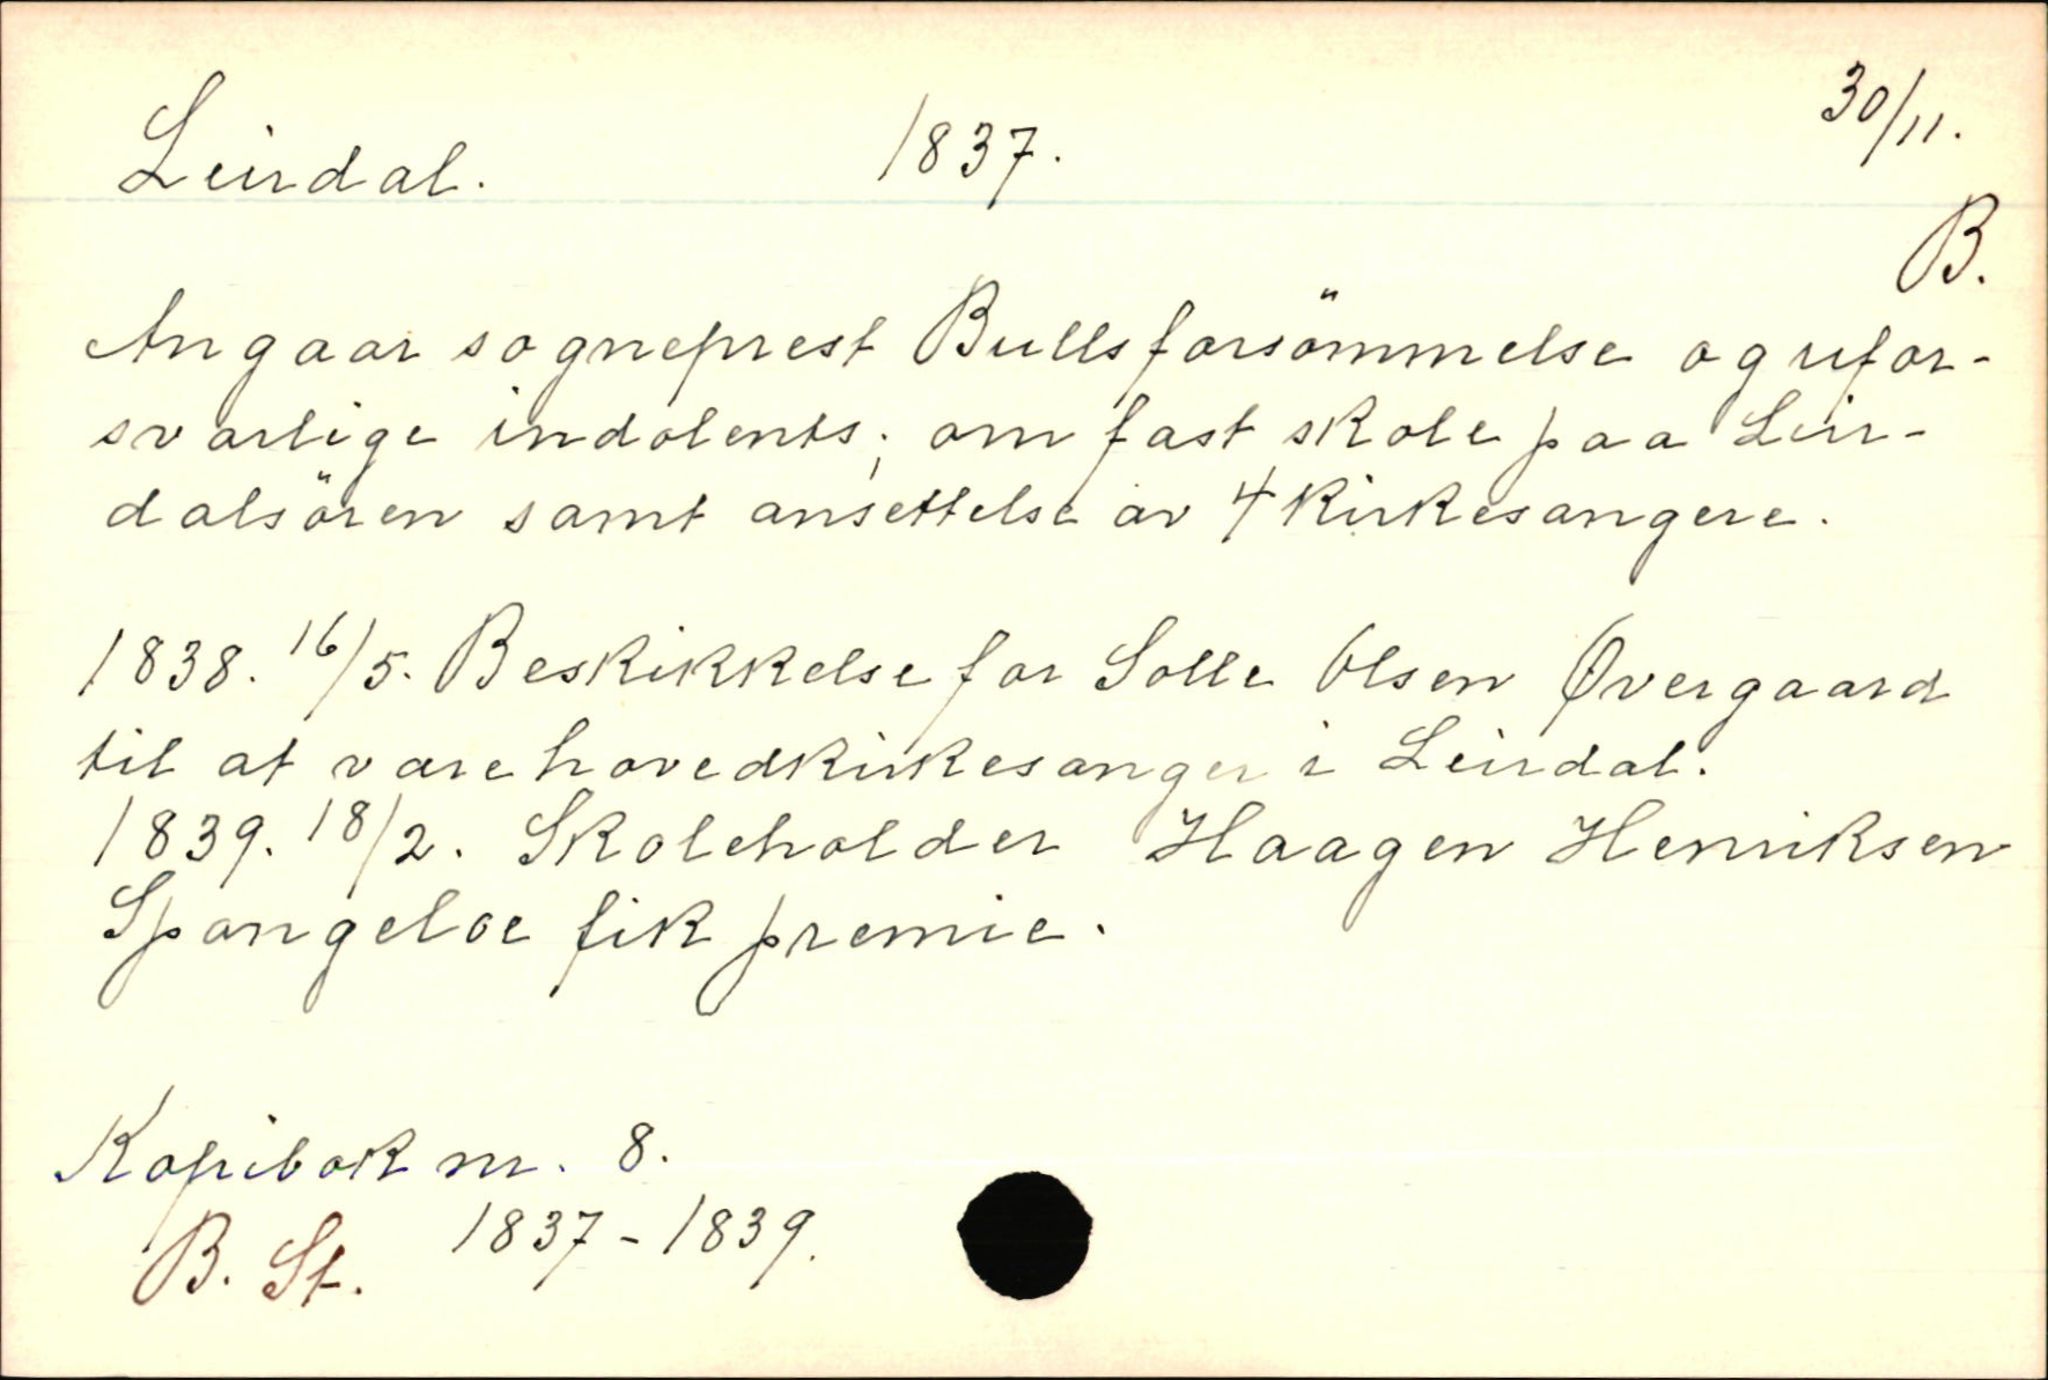 Leirdal. 1837. 30/11.
B.
Angaar sogneprest Bulls forsömmelse og ufor-
svarlige indolents; om fast skole paa Leir-
dalsören samt ansettelse av 4 kirkesangere.
1838. 16/5. Beskikkelse for Solle Olsen Øvergaard
til at være hovedkirkesanger i Leirdal.
1839. 18/2. Skoleholder Haagen Henriksen
Spangeloe fik premie.
Kopibok nr. 8.
B. St. 1837-1839.